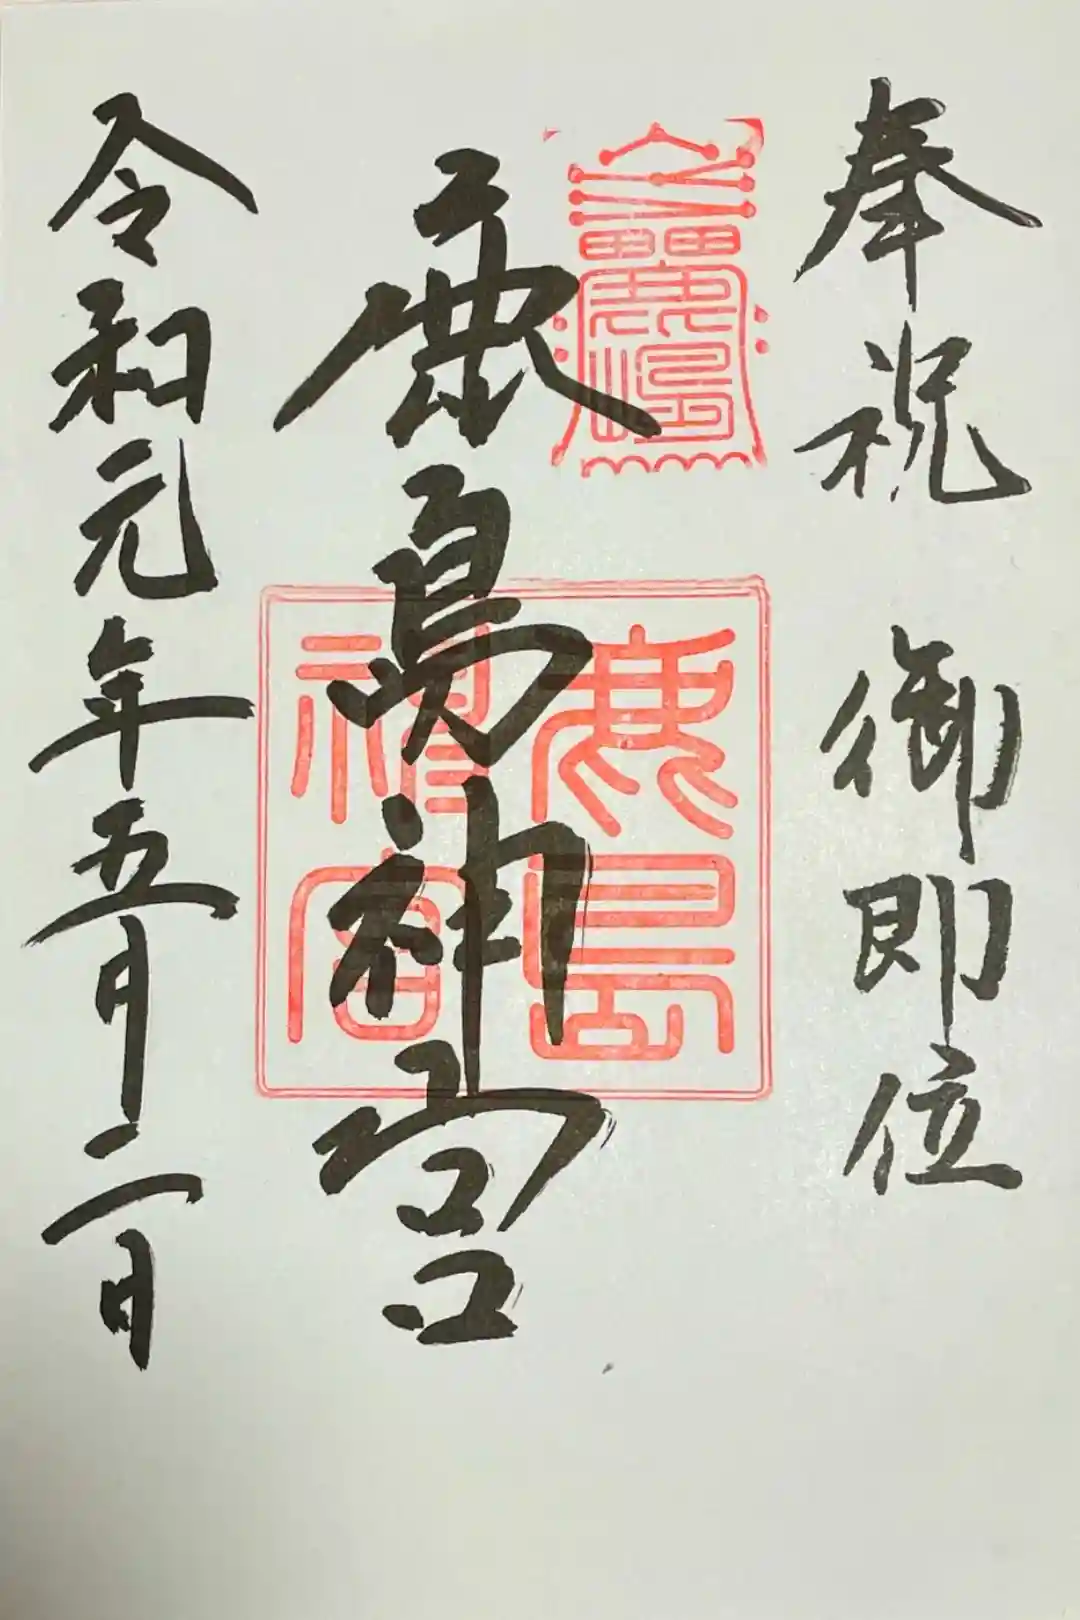 奉祝 御即位
鹿嶋神宮
鹿島
神宮
令和元年五月二日